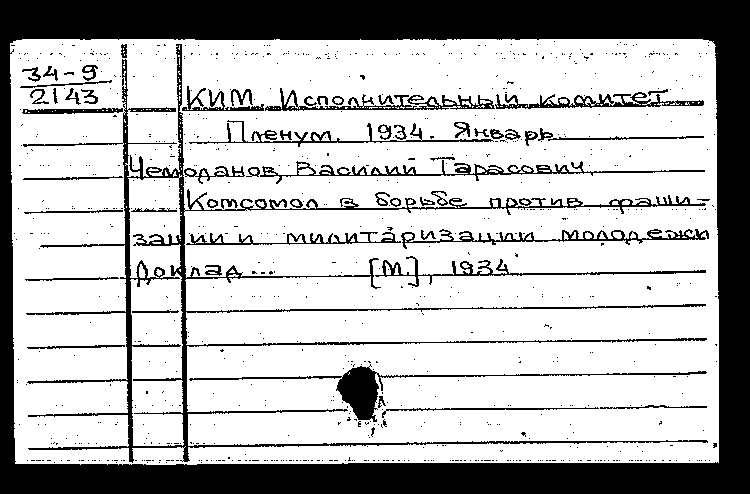 34-9
2143
КИМ. Исполнительный комитет
Пленум. 1934. Январь
Чемоданов, Василий Тарасович.
Комсомол в борьбе против фаши-
зации и милитаризации молодежи
Доклад... [М.], 1934